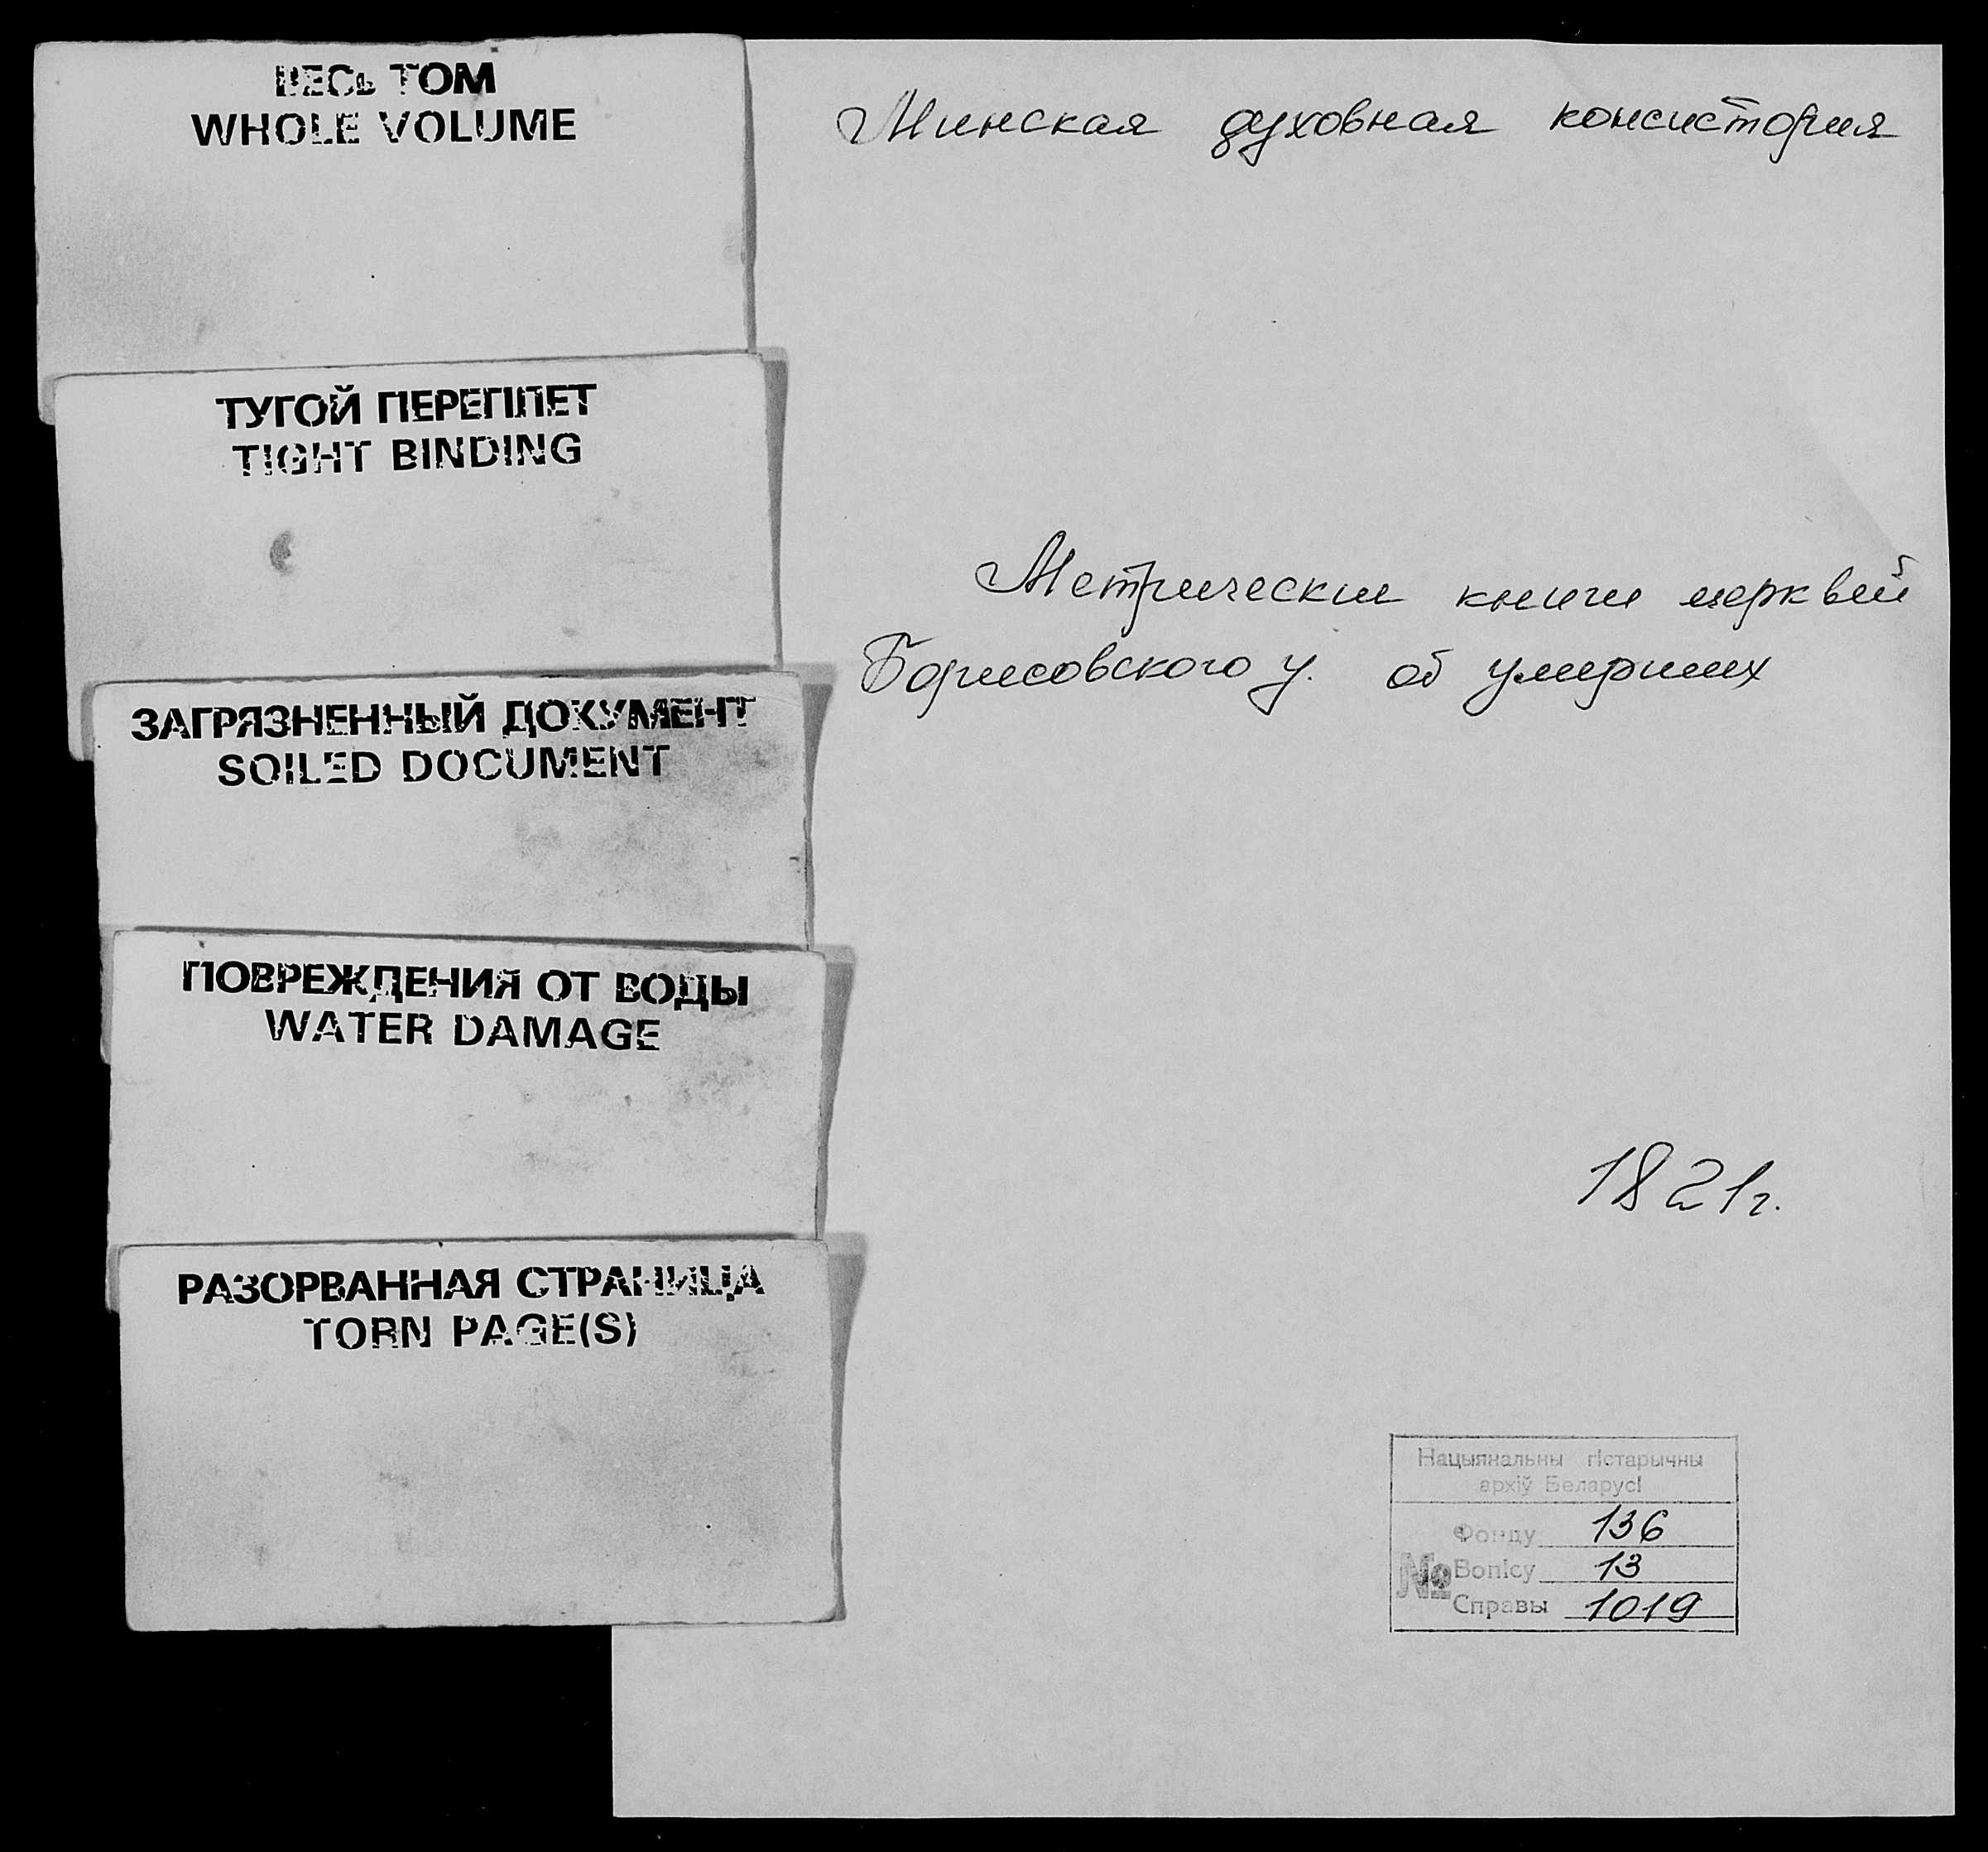 ВЕСЬ ТОМ
WHOLE VOLUME
ТУГОЙ ПЕРЕПЛЕТ
TIGHT BINDING
ЗАГРЯЗНЕННЫЙ ДОКУМЕНТ
SOILED DOCUMENT
ПОВРЕЖДЕНИЯ ОТ ВОДЫ
WATER DAMAGE
РАЗОРВАННАЯ СТРАНИЦА
TORN PAGE(S)
Минская духовная консистория
Метрические книги церквей
Борисовского у. об умерших
1821г.
Нацыянальны гістарычны
архіў Беларусі
Фонду 136
№ Вопісу 13
Справы 1019